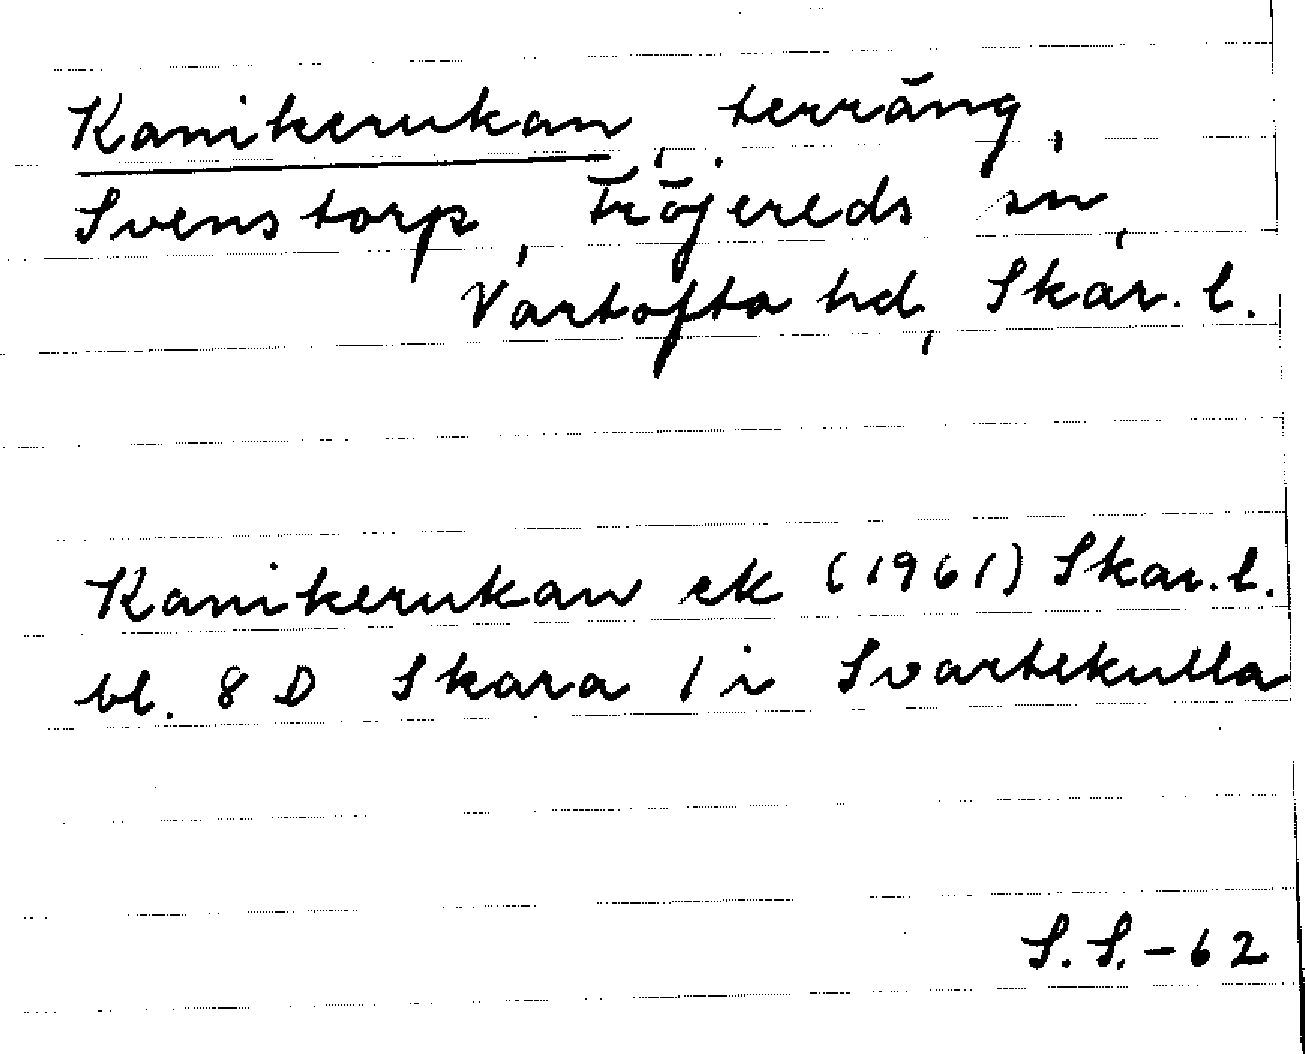 Kanikerukan, terräng,
Svenstorp, Fröjereds sn,
Vartofta hd, Skar. l.
Kanikerukan ek (1961) Skar. l.
bl. 8 D Skara 1 i Svartekulla
S. S. - 62